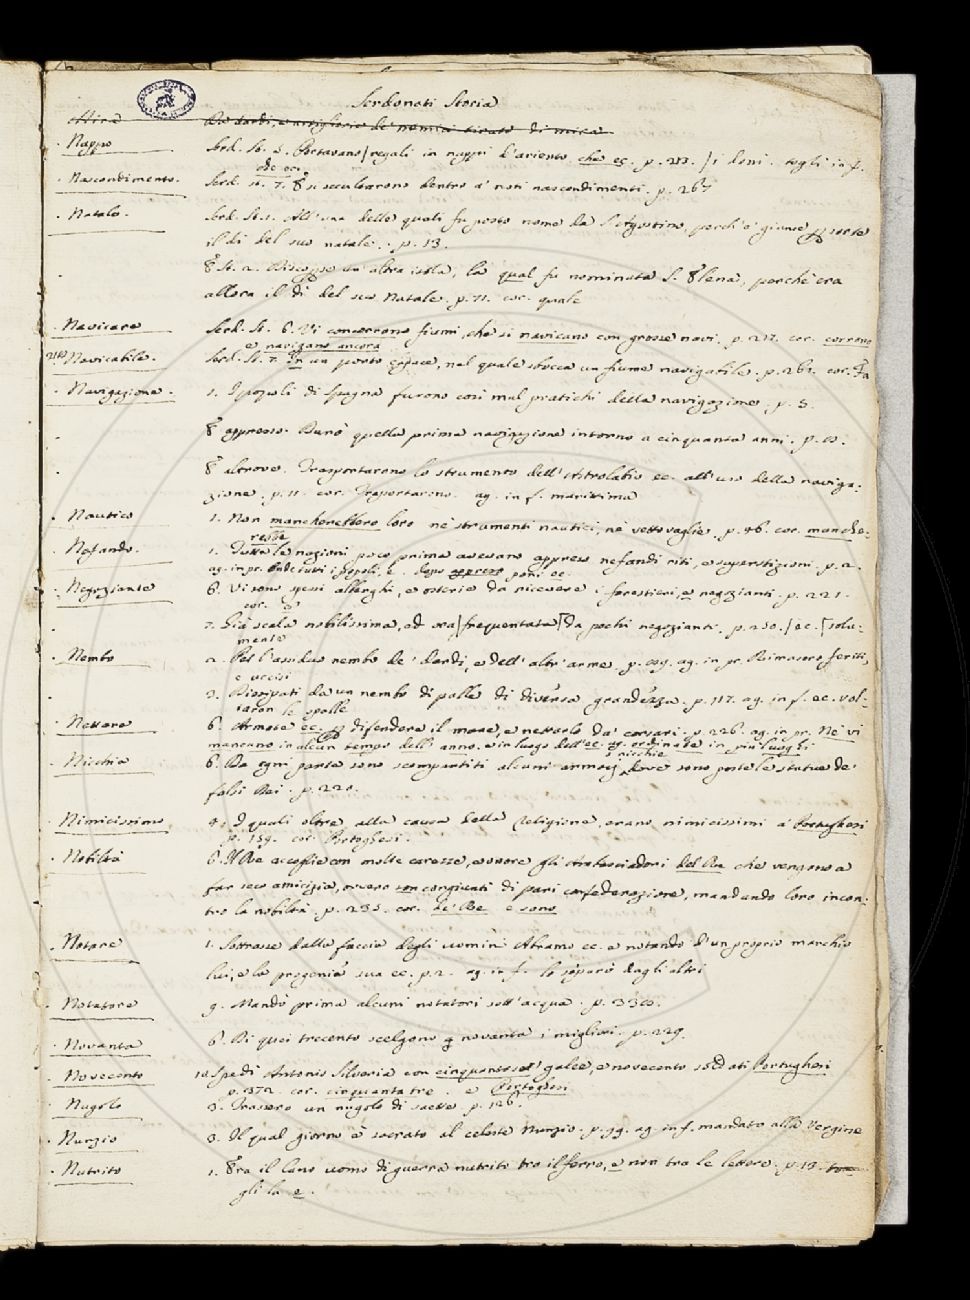 Serdonati Storia
Mira Da dardi, e artiglierie de' nemici tirate di mira
Nappo Serd. St. 5. Portavano / regali in nappi d'ariento che ec. p. 213. / i doni. togli in f.
che ec.
Nascondimento. Serd. St. 7. E si occultarono dentro a' noti nascondimenti. p. 267
Natale. Serd. St. 1. All'una delle quali fu posto nome da S. Agostino, perch'e' giunse
il di del suo natale. p. 13.
E St. 2. Discopse un'altra isola, la qual fu nominata S. Elena, perchè era
allora il dì del suo Natale. p. 71. cor. quale
Navicare Serd. St. 6. Vi concorrono fiumi, che si navicano con grosse navi. p. 217. cor. corrono
e navigano ancora
Navicabile. Serd. St. 7. In un porto capace, nel quale sbocca un fiume navigabile. p. 262. cor. Fa
Navigazione. 1. I popoli di Spagna furono così mal pratichi della navigazione. p. 5.
E appresso. Durò quella prima navigazione intorno a cinquanta anni. p. 10.
E altrove. Trasportarono lo strumento dell'Astrolabio ec. all'uso della naviga-
zione. p. 11. cor. Traportarono. ag. in f. marittima
Nautico 1. Non mancherebbero loro nè strumenti nautici, nè vettovaglie. p. 46. cor. manche-
rebbe
Nefando. 1. Tutte le nazioni poco prima avevano appresso nefandi riti, e superstizioni. p. 2.
ag. in pr. tutti i popoli, e. dopo appresso poni ec.
Negoziante 6. Vi sono spessi alberghi, e osterie da ricevere i forestieri, e negozianti. p. 221.
cor. o'
7. Già scala nobilissima, ed ora / frequentata / da pochi negozianti. p. 250. / ec. / sola-
mente
Nembo 2. Pel l'assiduo nembo de' dardi, e dell'altr'arme. p. ag. in pr. Rimasero feriti,
e uccisi
3. Dissipati da un nembo di palle di diversa grandezza. p. 117. ag. in f. ec. vol-
taron le spalle
Nettare 6. Armate ec. difendere il mare, e nettarlo da' corsari. p. 226. ag. in pr. Nè vi
mancano in alcun tempo dell'anno. e in luogo dell'ec. ag. ordinate in più luoghi
e nicchie
Nicchia 6. Da ogni parte sono scompartiti alcuni armarj, dove sono poste le statue de'
falsi Dei. p. 220.
Nimicissimo 4. I quali oltre alla causa della Religione, erano nimicissimi a' Portughesi
p. 159. cor. Portoghesi.
Nobiltà 6. Il Re accoglie con molte carezze, e onore gli Ambasciadori del Re che vengono a
far seco amicizia, ovvero son congiunti di pari confederazione, mandando loro incon-
tro la nobiltà. p. 235. cor. de' Re e sono
Notare 1. Sottrasse dalla faccia degli uomini Abramo ec. e notando d'un proprio marchio
lui, e la progenie sua ec. p. 2. ag. in f. lo separò dagli altri
Notatore 9. Mandò prima alcuni notatori sott'acqua. p. 336.
Novanta 6. Di quei trecento scelgono novanta i migliori. p. 229.
Novecento 10. Spedì Antonio Silveria con cinquantasei galee, e novecento soldati Portughesi
p. 372. cor. cinquantatre. e Portoghesi
Nugolo 3. Trassero un nugolo di saette. p. 126.
Nunzio 3. Il qual giorno è sacrato al celeste Nunzio. p. 99. ag. in f. mandato alla Vergine
Nutrito 1. Era il Leno uomo di guerra nutrito tra il ferro, e non tra le lettere. p. 13. to
gli la e.